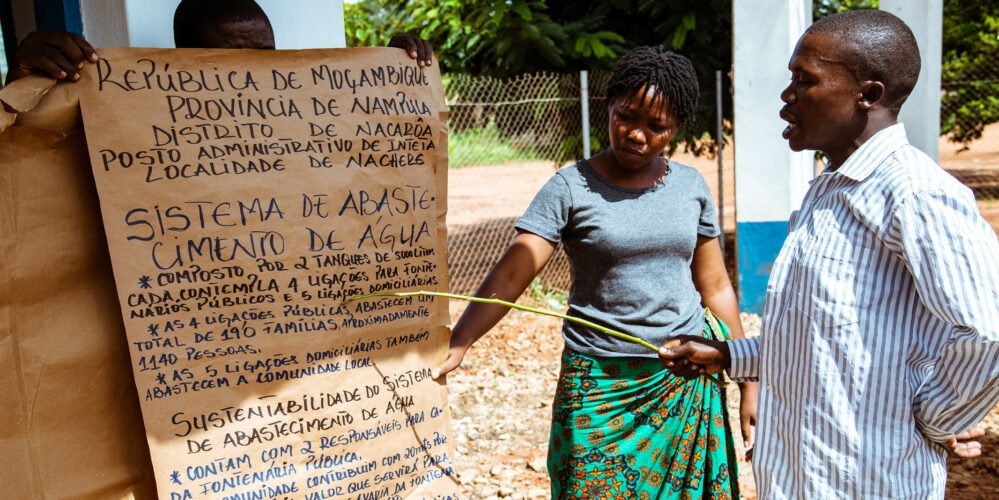 REPÚBLICA DE MOÇAMBIQUE
PROVÍNCIA DE NAMPULA
DISTRITO DE NACARÔA
POSTO ADMINISTRATIVO DE INTETA
LOCALIDADE DE NACHERE
SISTEMA DE ABASTE-
CIMENTO DE ÁGUA
* COMPOSTO POR 2 TANQUES DE 5000 LITROS
CADA. CONTEMPLA 4 LIGAÇÕES PARA FONTE-
NÁRIOS PÚBLICOS E 5 LIGAÇÕES DOMICILIÁRIAS
* AS 4 LIGAÇÕES PÚBLICAS, ABASTECEM UM
TOTAL DE 190 FAMÍLIAS, APROXIMADAMENTE
1140 PESSOAS.
* AS 5 LIGAÇÕES DOMICILIARIAS TAMBÉM
ABASTECEM A COMUNIDADE LOCAL.
SUSTENTABILIDADE DO SISTEMA
DE ABASTECIMENTO DE ÁGUA
* CONTAM COM 2 RESPONSÁVEIS PARA CA-
DA FONTENÁRIA PÚBLICA.
COMUNIDADE CONTRIBUIM COM 20MTS POR
VALOR QUE SERVIRÁ PARA
DA FONTENA